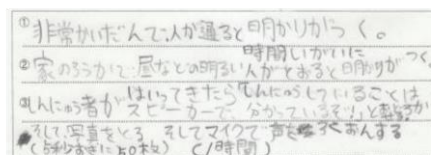 ①非常かいだんで、人が通ると明かりがつく。
時間しいがいに
②家のろうかで、昼などの明るい人がとおると明かりがつく
③しんにゅう者がはいってきたらしんにゅうしていることは
スピーカーで、分かっているぞ」と
そして写真をとる そしてマイクで声をろくおんする
(5秒すぎに50枚) (1時間)